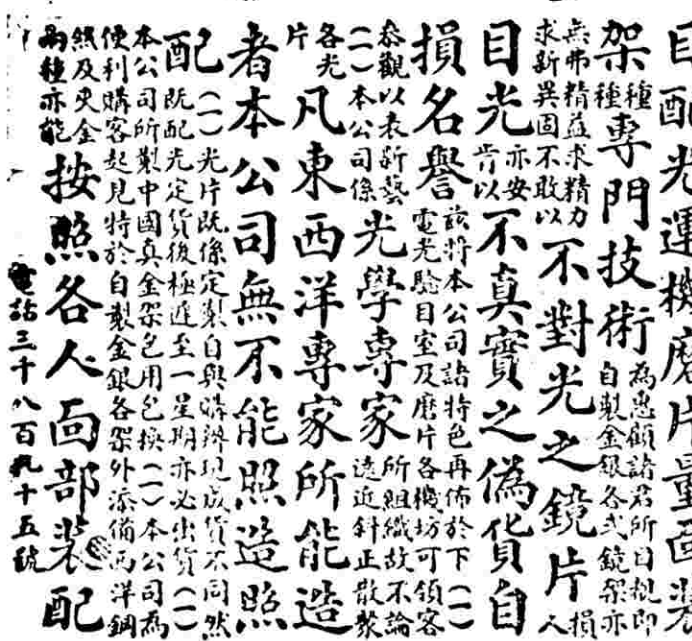 目配光運機磨片量面裝
架種種專門技術為惠顧諸君所目覩即自製金銀各式鏡架亦
無弗精益求精力求新異固不敢以不對光之鏡片損人
目光亦安肯以不真實之偽貨自
損名譽茲將本公司諸特色再佈於下(一)電光驗目室及磨片各機坊可領客
參觀以表新藝(一)本公司係光學專家所組織故不論遠近斜正散聚
各光片凡東西洋專家所能造
者本公司無不能照造照
配(一)光片既係定製自與購辦現成貨不同然既配光定貨後極遲至一星期亦必出貨(一)
本公司所製中國真金架包用包換(一)本公司為便利購客起見特於自製金銀各架外添備西洋鋼
絲及夾金兩種亦能按照各人面部裝配
電話三千八百九十五號